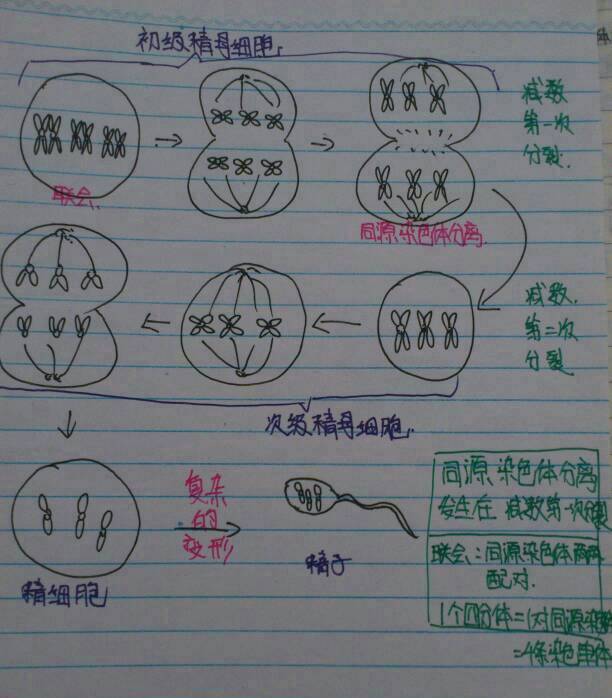 初级精母细胞
减数
第一次
分裂
联会
同源染色体分离
减数
第二次
分裂
次级精母细胞
复杂
的
变形
精细胞
精子
同源染色体分离
发生在减数第一次分裂
联会:同源染色体两两
配对.
1个四分体=1对同源染色体
=4条染色单体